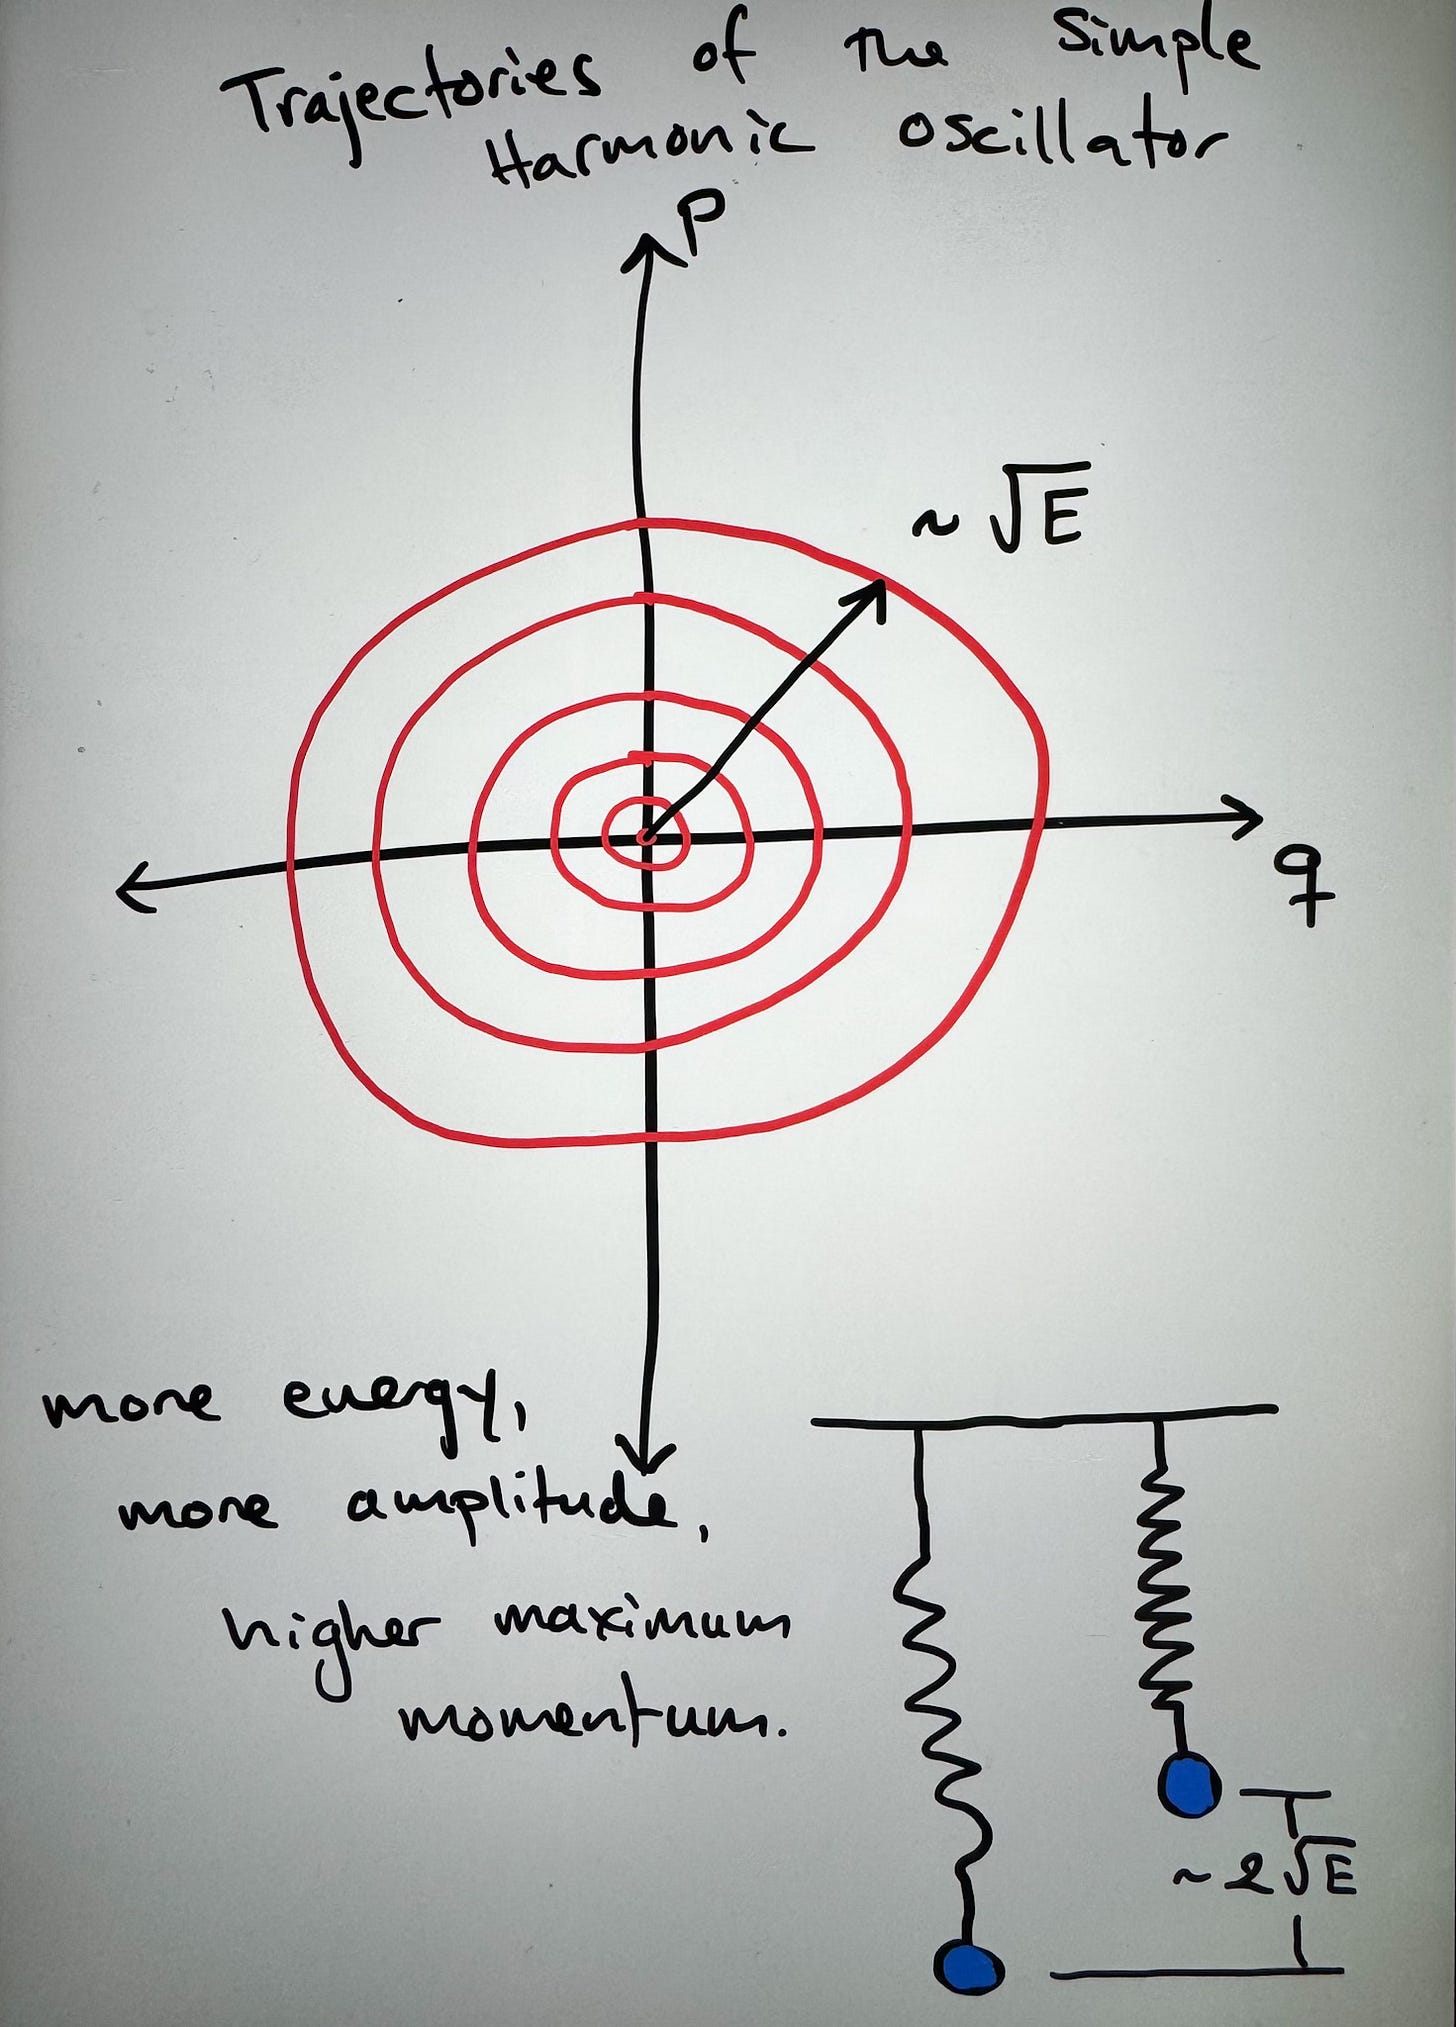 Trajectories of the Simple
Harmonic oscillator
P
~ √E
q
more energy,
more amplitude,
higher maximum
momentum.
~ 2√E